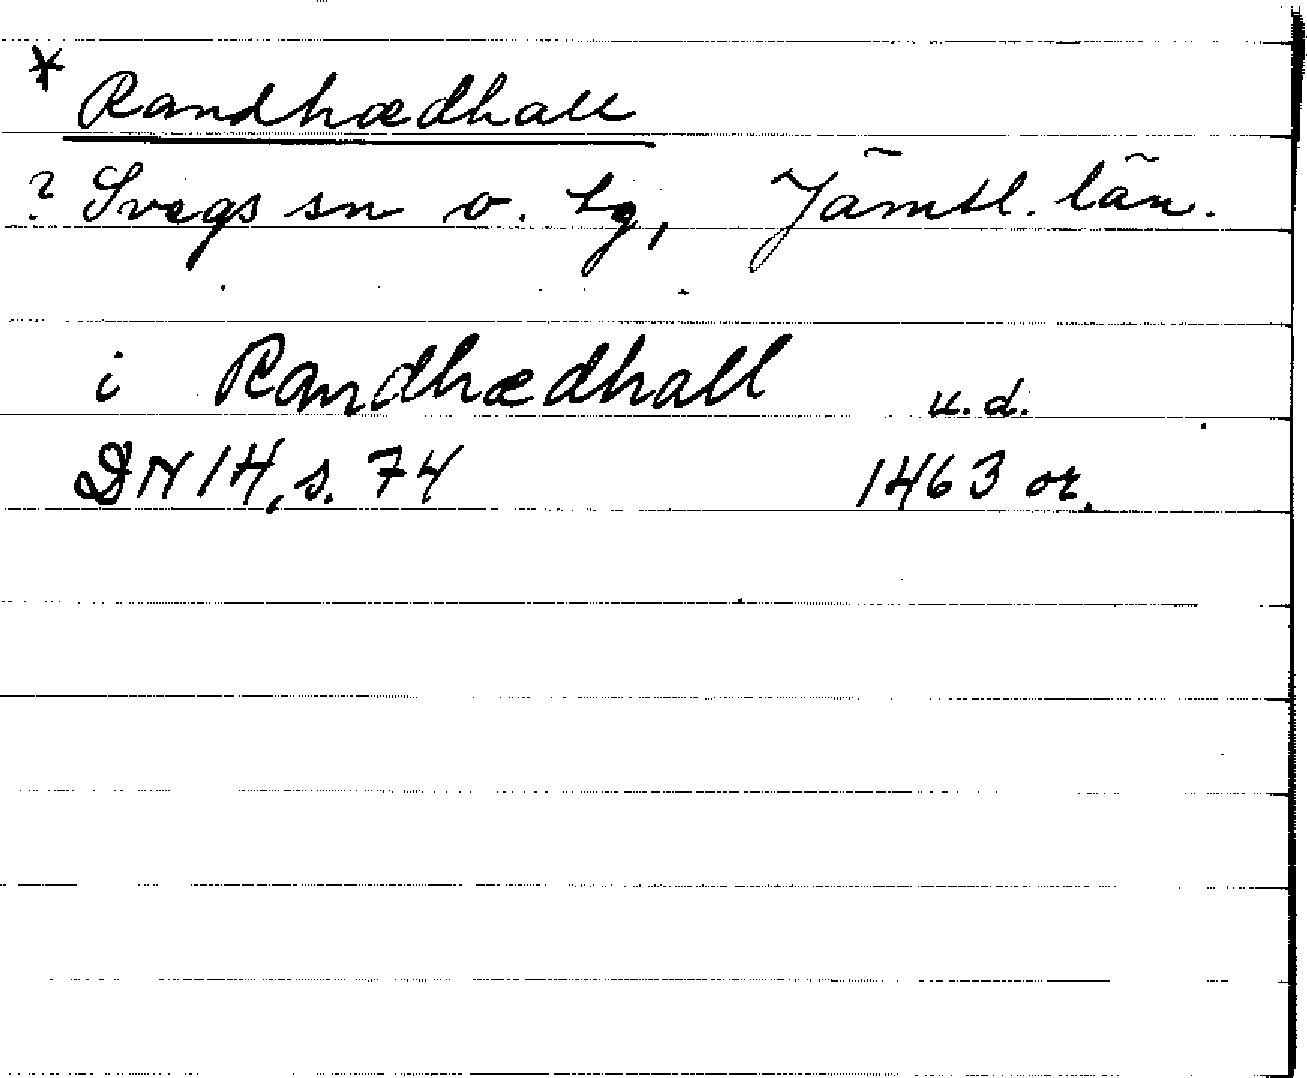 * Randhædhall
? Svegs sn o. tg, Jämtl. län.
i Randhædhall u.d.
DN 14, s. 74 1463 or.